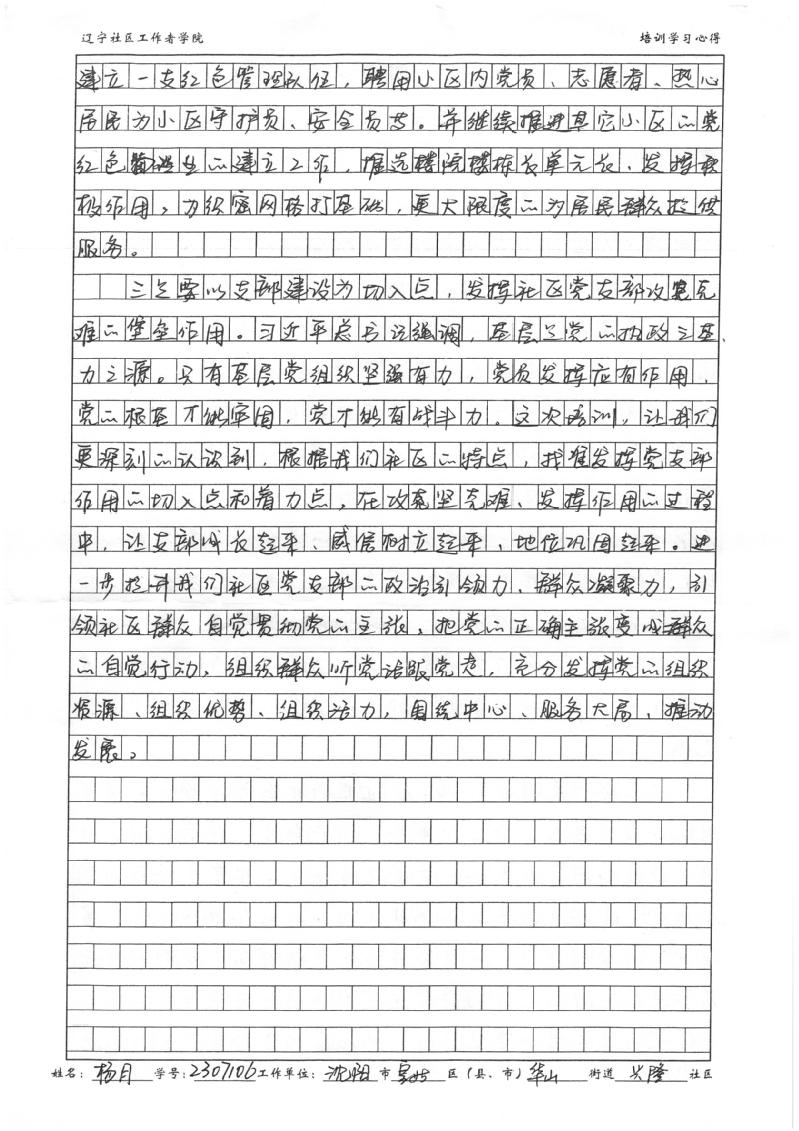 辽宁社区工作者学院 培训学习心得
建立一支红色管理队伍，聘用小区内党员、志愿者、热心
居民为小区守护员、安全员等。并继续推进其它小区的党
红色物业的建立工作，推选楼院楼栋长单元长，发挥积
极作用，为织密网格打基础，更大限度的为居民群众提供
服务。
三是要以支部建设为切入点，发挥社区党支部攻坚克
难的堡垒作用。习近平总书记强调，基层是党的执政之基、
力之源。只有基层党组织坚强有力，党员发挥应有作用，
党的根基才能牢固，党才能有战斗力。这次培训，让我们
更深刻的认识到，根据我们社区的特点，找准发挥党支部
作用的切入点和着力点，在攻坚克难、发挥作用的过程
中，让支部成长起来、威信树立起来、地位巩固起来。进
一步提升我们社区党支部的政治引领力、群众凝聚力，引
领社区群众自觉贯彻党的主张，把党的正确主张变成群众
的自觉行动，组织群众听党话跟党走，充分发挥党的组织
资源、组织优势、组织活力，围绕中心、服务大局、推动
发展。
姓名：杨月 学号：2307106 工作单位：沈阳市皇姑区（县、市）华山街道兴隆社区